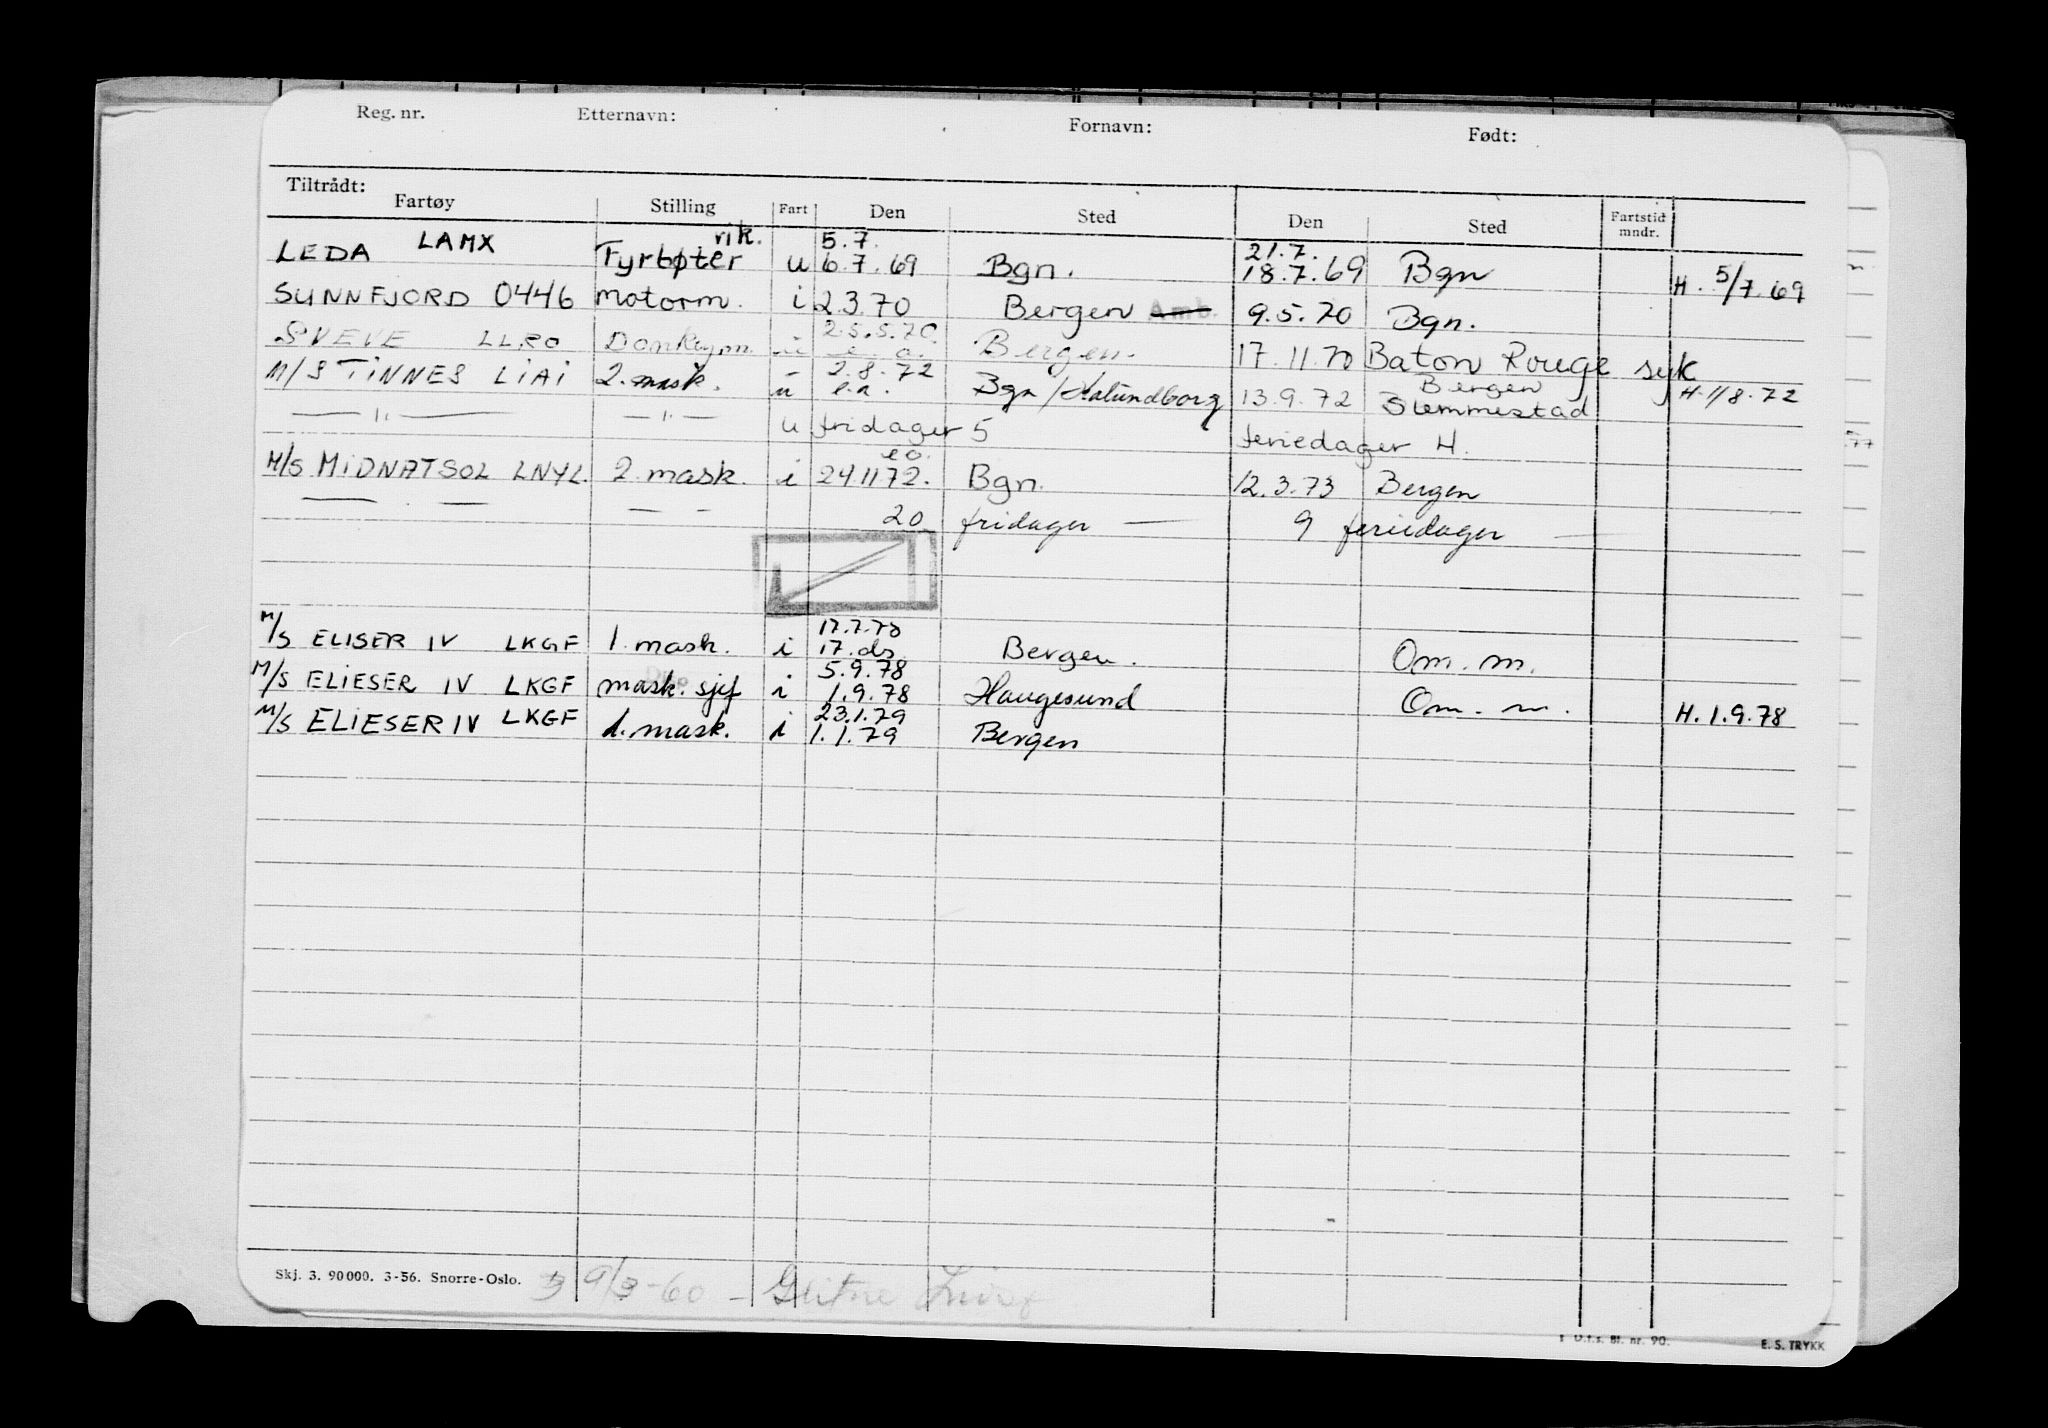 Reg. nr. Etternavn: Fornavn: Født:
Tiltrådt:
Fartøy Stilling Fart Den Sted Den Sted Fartstid mndr.
vik. 5.7. 21.7.
LEDA LAMX Fyrbøter u 6.7.69 Bgn. 18.7.69 Bgn H. 5/7.69
SUNNFJORD 0446 motorm. i 2.3.70 Bergen Amb. 9.5.70 Bgn.
25.5.70
SVEVE LLRO Donkeym. u e.a. Bergen. 17.11.70 Baton Rouge syk
2.8.72 Bergen
M/S TINNES LIAI 2. mask. u e.a. Bgn/Kalundborg 13.9.72 Slemmestad H. 1/8.72
— " — — " — u fridager 5 feriedager 4.
e.o.
M/S MIDNATSOL LNYL. 2. mask. i 24.11.72. Bgn. 12.3.73 Bergen
— — — — 20 fridager — 9 feriedager —
17.7.78
M/S ELISER IV LKGF 1. mask. i 17. ds. Bergen. Om. m.
5.9.78
M/S ELIESER IV LKGF mask. sjef i 1.9.78 Haugesund Om. m.
23.1.79 H. 1.9.78
M/S ELIESER IV LKGF 1. mask. i 1.1.79 Bergen
Skj. 3. 90000. 3-56. Snorre-Oslo. 9/3-60 —
Bl. nr. 90. E. S. TRYKK